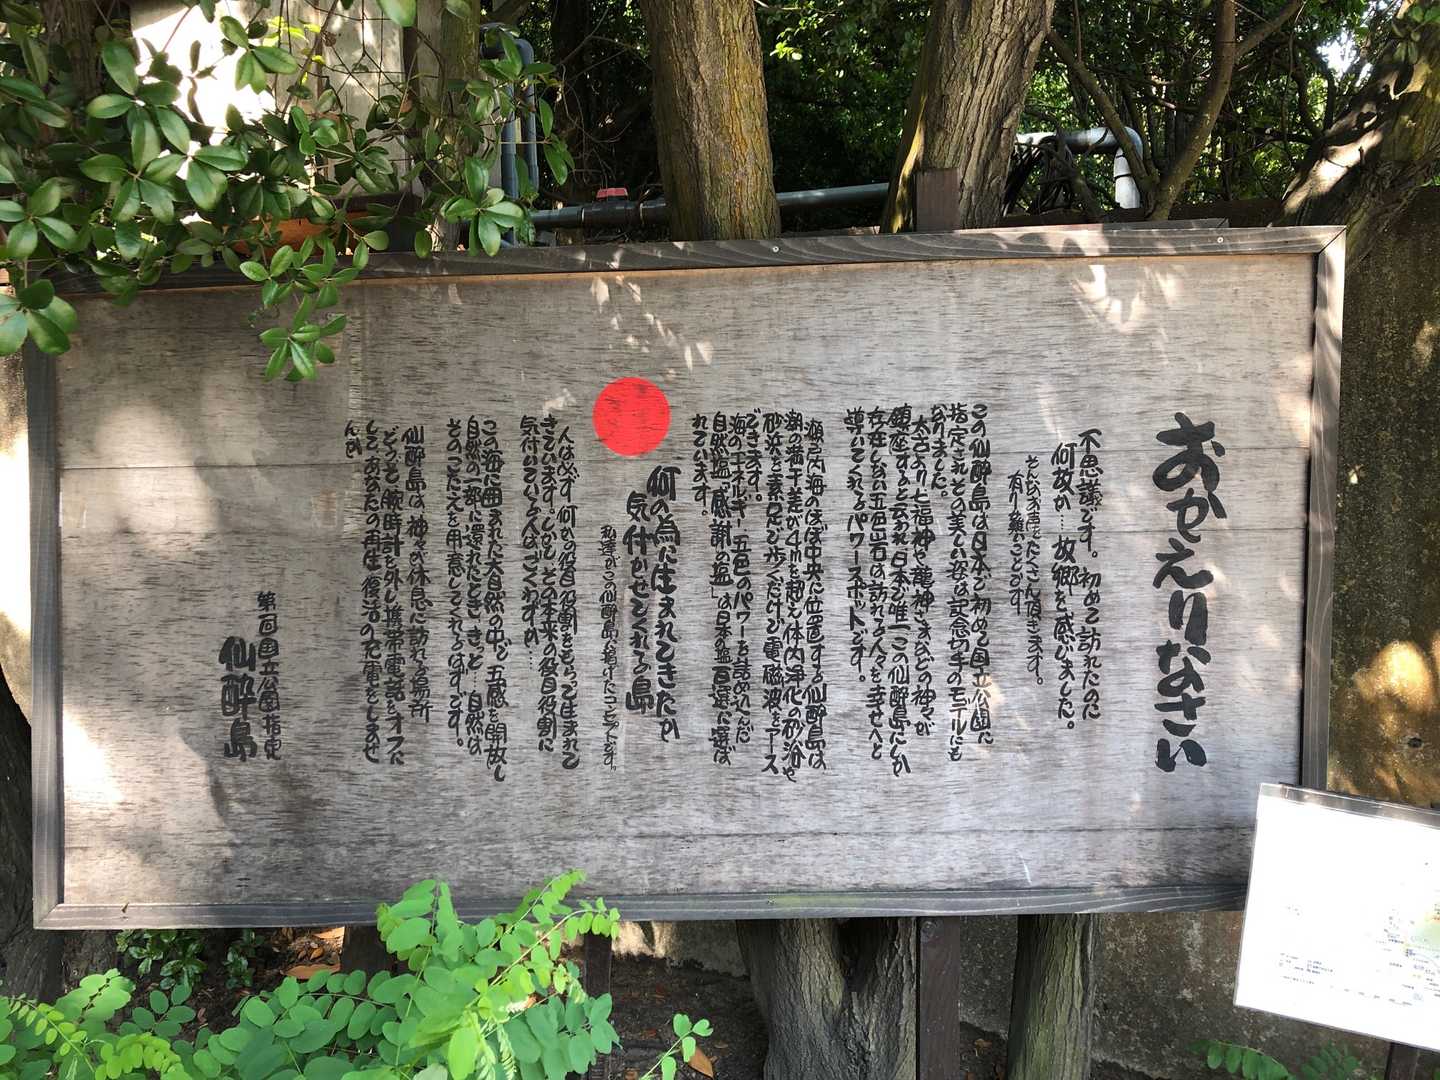 おかえりなさい
不思議です。初めて訪れたのに
何故か…故郷を感じました。
そんなお声をたくさん頂きます。
有り難いことです。
この仙酔島は日本で初めて国立公園に
指定されその美しい姿は記念切手のモデルにも
なりました。
太古より七福神や龍神さまなどの神々が
鎮座すると云われ日本で唯一この仙酔島にしか
存在しない五色岩は訪れる人々を幸せへと
導いてくれるパワースポットです。
瀬戸内海のほぼ中央に位置する仙酔島は
潮の満干差が4mを超え体内浄化の砂浴や
砂浜を素わだしで歩くだけで電磁波をアース
できます。
海のエネルギー五色のパワーを詰め込んだ
自然塩「感謝の塩」は日本塩百選に選ば
れています。
何の為に生まれてきたか
気付かせてくれる島
私達がこの仙酔島で掲げたコンセプトです。
人は必ず何かの役目役割をもらって生まれて
きています。しかしその本来の役目役割に
気付いている人はごくわずか…
この海に囲まれた大自然の中で五感を開放し
自然の一部に還れたとき、きっと…自然は
そのこたえを用意してくれるはずです。
仙酔島は神々が休息に訪れる場所
どうぞ腕時計を外し携帯電話をオフに
してあなたの再生復活の充電をしませ
んか
第一回国立公園指定
仙酔島